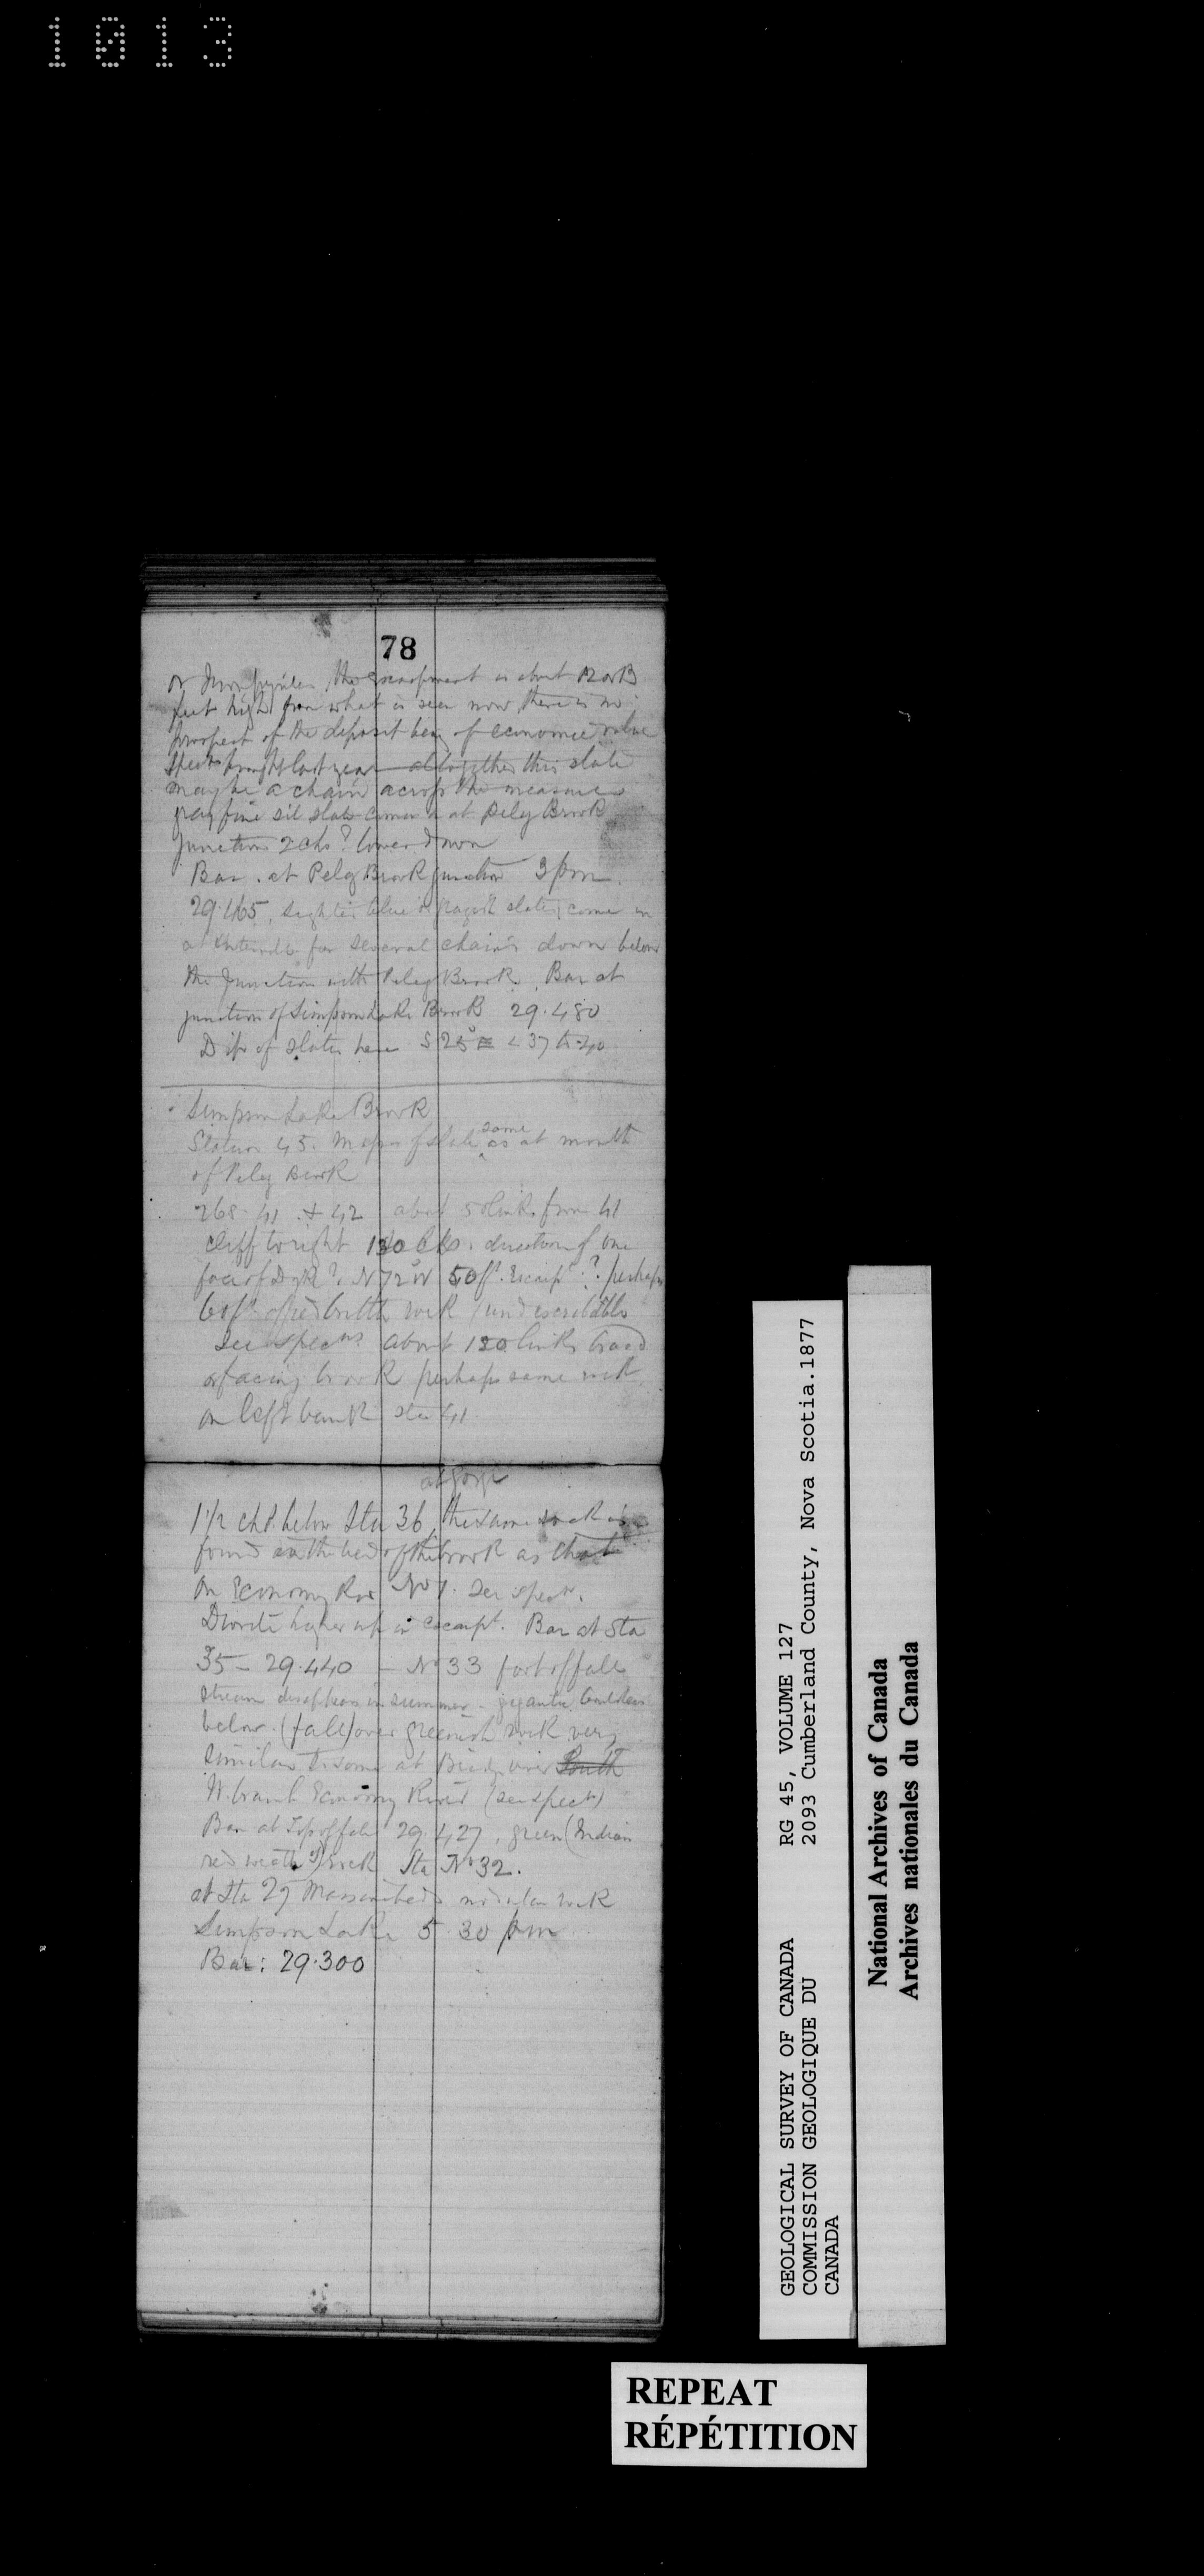 1013
78
or Iron pyrites, the escarpment is about 12 or 13
feet high from what is seen now there is no
prospect of the deposit being of economic value
specns brought last year altogether this slate
may be a chain across the measures
gray fine sil slate comes in at Peleg Brook
junction 2 chs? lower down
Bar. at Peleg Brook junction 3 pm.
29.465, slates come in
at intervals for several chains down below
the Junction with Peleg Brook. Bar at
junction of Simpson Lake Brook 29.480
Dip of slates here S 25° E < 37 to 40
Simpson Lake Brook
Station 45. of slate same as at mouth
of Peleg Brook
268 41 & 42 about 50 links from 41
cliff to right 130 lks. direction of one
face of Dyke?. N 72° W 50 ft. Escarpt?. perhaps
60 ft of red brittle rock
See specns about 130 links broad
facing brook perhaps same rock
on left bank sta 41
at gorge
1 1/2 chs. below Sta 36, the same rock is
found in the bed of the brook as that
on Economy No 1. See specn.
Diorite higher up in escarpt. Bar at Sta
35 - 29.440 - No 33 foot of fall
stream disappears in summer - gigantic boulders
below. (fall) over greenish rock very
similar to some at Bridge over South
W. branch Economy River (see spect)
Bar at Top of fall 29.427, green (Indian
red weathg) rock Sta No 32.
at Sta 27 rock
Simpson Lake 5.30 pm
Bar: 29.300
GEOLOGICAL SURVEY OF CANADA RG 45, VOLUME 127
COMMISSION GEOLOGIQUE DU 2093 Cumberland County, Nova Scotia.1877
CANADA
National Archives of Canada
Archives nationales du Canada
REPEAT
RÉPÉTITION